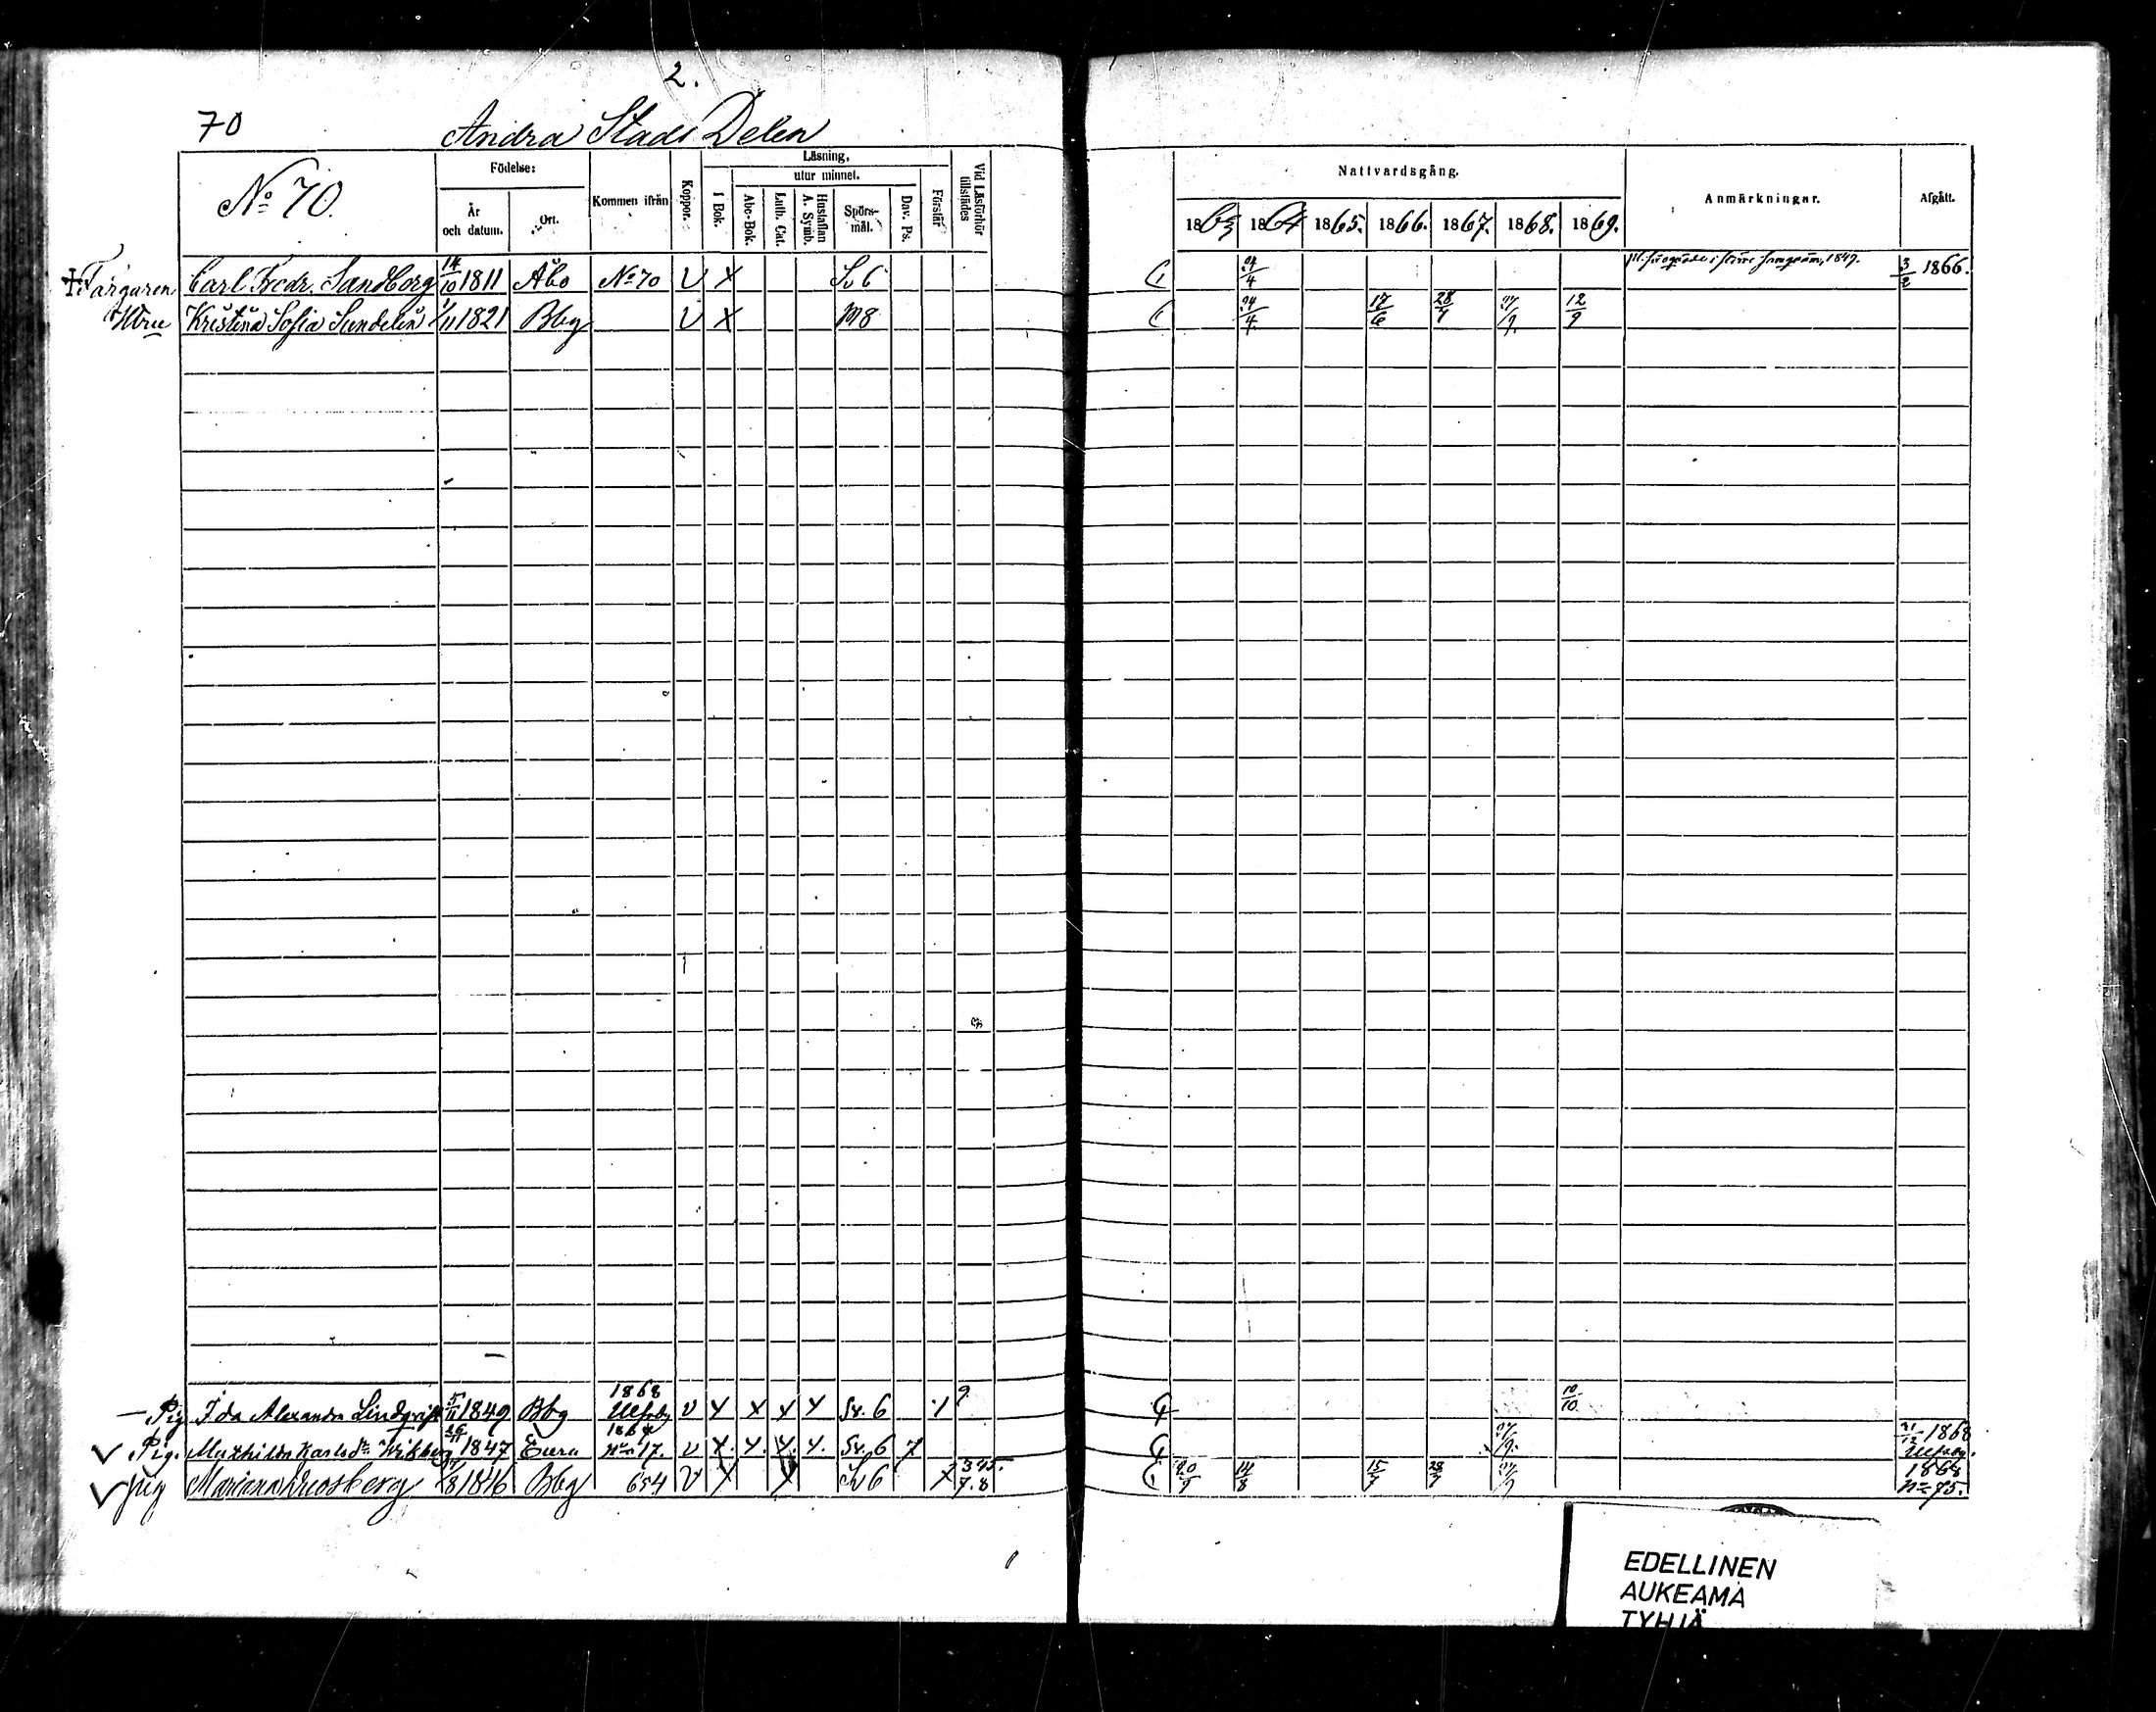 2.
70 Andra Stads Delen
No 70. Födelse: Kommen ifrån Koppor. Läsning, Vid Läsförhör tillstädes Nattvardsgång. Anmärkningar. Afgått.
År och datum. Ort. I Bok. utur minnet. Förstår
Abc-Bok. Luth. Cat. Hustaflan A. Symb. Spörsmål. Dav. Ps.
1863 1864 1865. 1866. 1867. 1868. 1869.
Färgaren Carl Fredr. Sandborg 14/10 1811 Åbo No 70 V X Sv 6 24/4 1849. 3/2 1866.
Hru Kristina Sofia Sundelin 1/11 1821 Bbg V X M8 24/4 17/6 28/7 12/9
1868
Pig Ida Alexandra Lindqvist 5/11 1849 Bbg Ulfsby v X X X X Sv. 6 9 10/10
1864
Pig. Mathilda Karlsdr Wikberg 1847 Eura no 17. v X. X. X. X. Sv. 6 7 1868 Ulfsby.
Pig 1816 Bbg 654 V X X Sv 6 X 345. 7.8 20/9 14/8 15/7 28/7 1868 no 75.
EDELLINEN
AUKEAMA
TYHJÄ